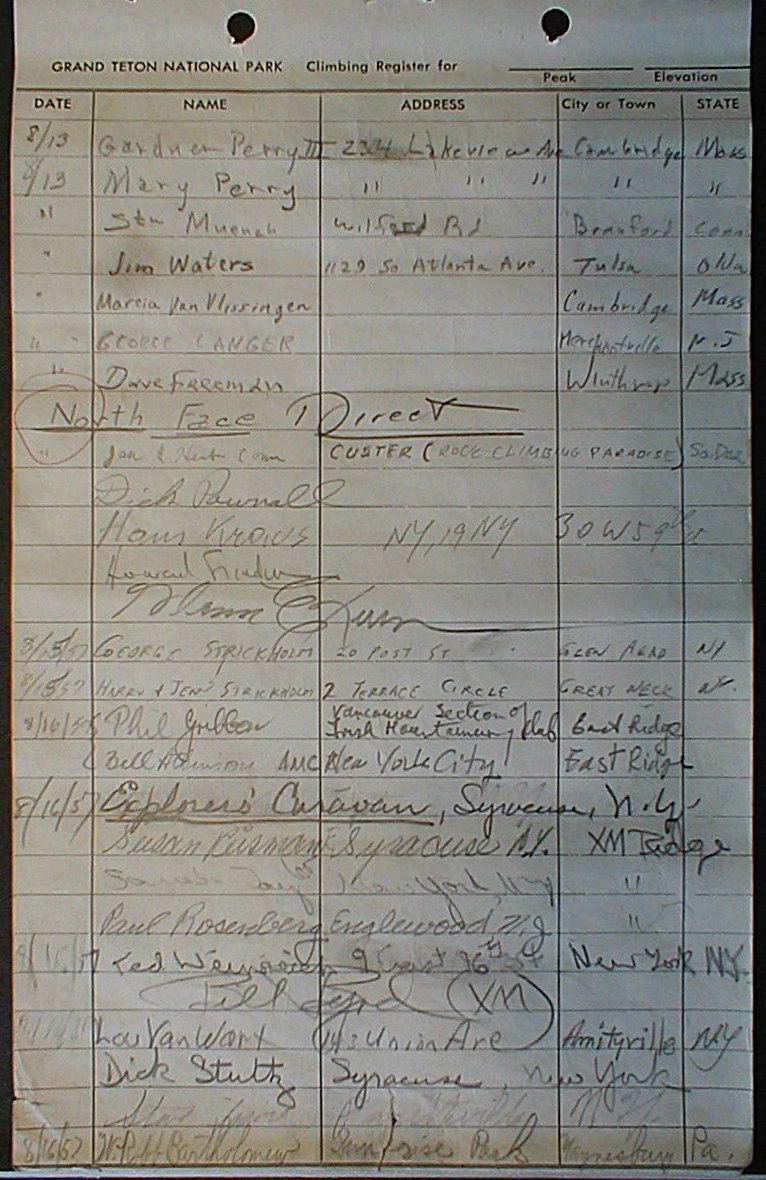 GRAND TETON NATIONAL PARK Climbing Register for
Peak Elevation
DATE NAME ADDRESS City or Town STATE
8/13 Gardner Perry III Lakeview Ave Cambridge Mass
8/13 Mary Perry " " " " "
" Stu Muench Rd Branford Conn
" Jim Waters 1129 So Atlanta Ave. Tulsa Okla
" Marcia Van Vlissingen Cambridge Mass
" " GEORGE LANGER Merchantville N.J
" Dave Freeman Winthrop Mass
North Face Direct
" Jan & Herb Conn CUSTER (ROCK CLIMBING PARADISE) So.Dak
Dick Pownall
Hans Kraus NY, 19 NY 30 W 59th St
Howard
Glenn Exum
8/15/57 GEORGE STRICKHOLM 20 POST ST GLEN HEAD NY
8/15/57 HARRY & JENN STRICKHOLM 2 TERRACE CIRCLE GREAT NECK N.Y.
8/16/57 Phil Gribbon Vancouver Section of Irish Mountaineering Club East Ridge
Bill Atkinson AMC New York City East Ridge
8/16/57 Explorers' Caravan, Syracuse, N.Y.
Susan Syracuse N.Y. XM Ridge
New York, NY "
Paul Rosenberg Englewood N.J "
Ted 9 East 96th St New York NY.
(XM)
Lou Van Wart 143 Union Ave Amityville NY
Dick Stultz Syracuse, New York
8/16/57 Bartholomew Park Waynesburg Pa.